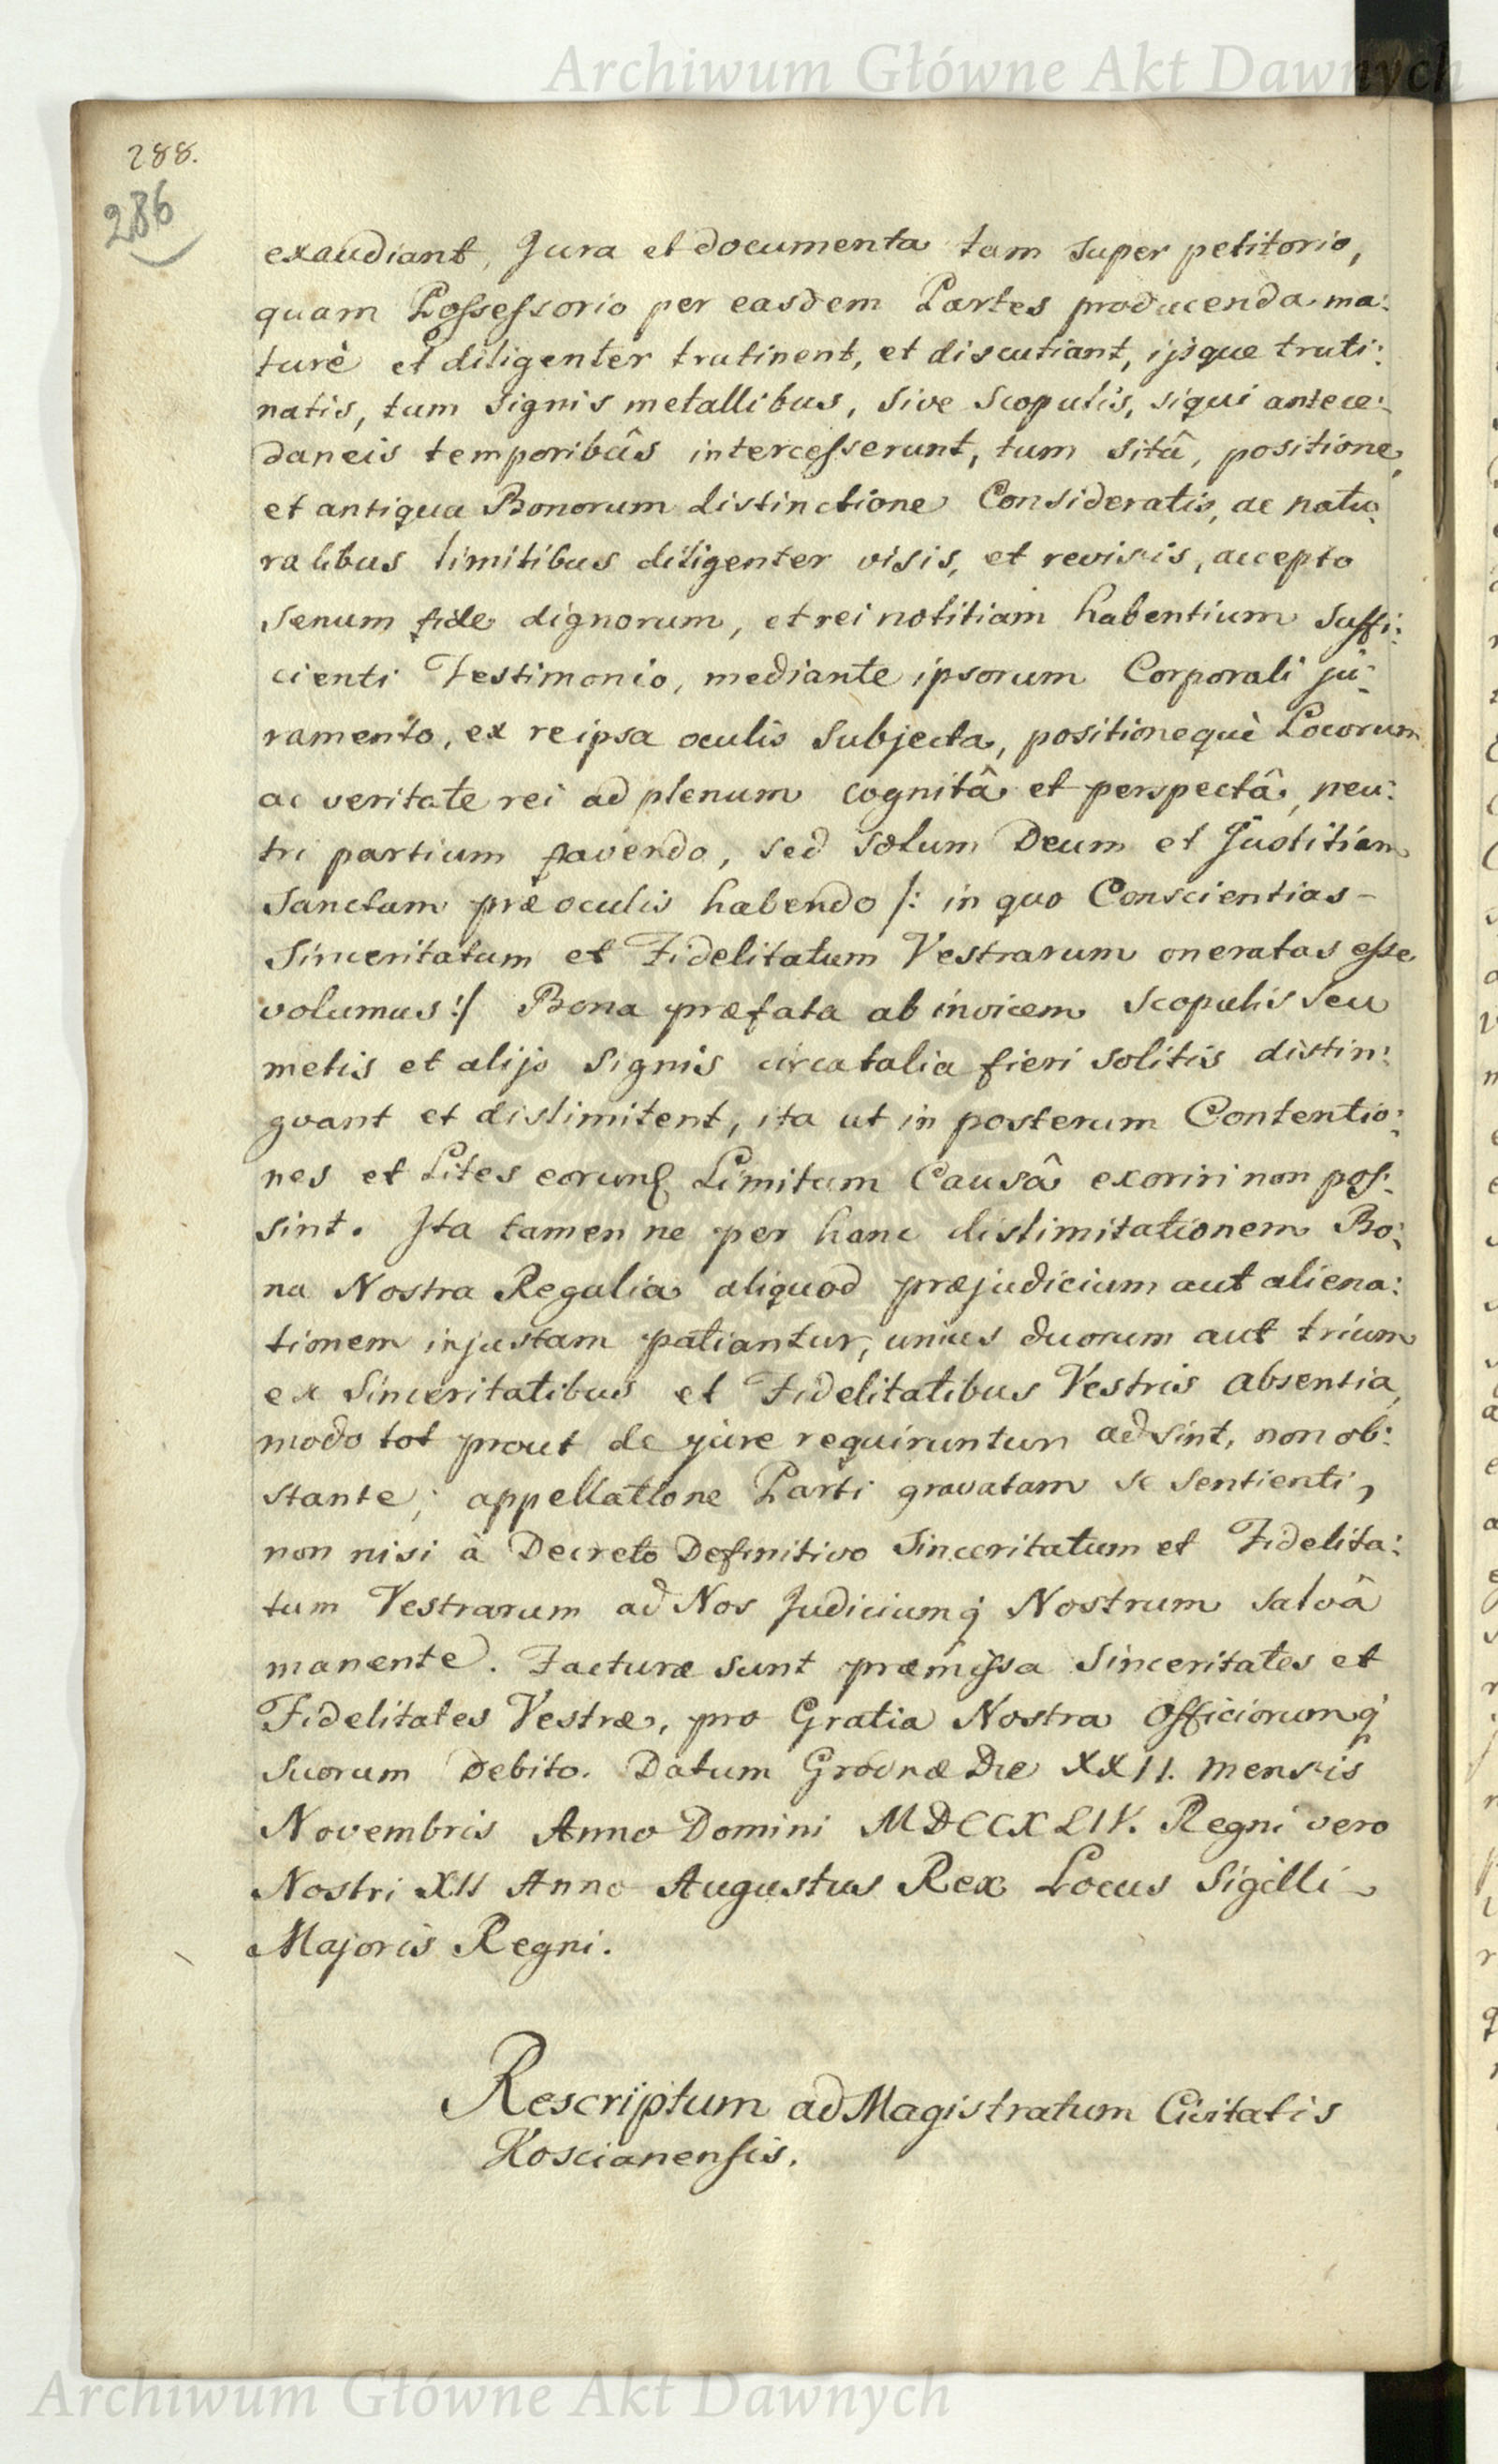 Archiwum Główne Akt Dawnych
288.
286
exaudiant, Jura et documenta tam super petitorio,
quam Possessorio per easdem Partes producenda ma:
turè et diligenter trutinent, et discutiant, ijsque truti:
natis, tum signis metallibus, sive Scopulis, siqui antece:
daneis temporibûs intercesserunt, tum sitû, positione,
et antiqua Bonorum distinctione Consideratis, ac natu:
ralibus limitibus diligenter visis, et revisis, accepto
Senum fide dignorum, et rei notitiam habentium suffi:
cienti Testimonio, mediante ipsorum Corporali ju:
ramento, ex re ipsa oculis Subjecta, positionequè Locorum
ac veritate rei ad plenum cognitâ et perspectâ, neu:
tri partium favendo, sed solum Deum et Justitiam
Sanctam præ oculis habendo /: in quo Conscientias –
Sinceritatum et Fidelitatum Vestrarum oneratas esse
volumus :/ Bona præfata ab invicem Scopulis seu
metis et alijs Signis circa talia fieri solitis distin:
gvant et dislimitent, ita ut in posterum Contentio:
nes et Lites eorund Limitum Causâ exoriri non pos:
sint. Ita tamen ne per hanc dislimitationem Bo:
na Nostra Regalia aliquod præjudicium aut aliena:
tionem injustam patiantur, unius duorum aut trium
ex Sinceritatibus et Fidelitatibus Vestris absentia,
modo tot prout de jure requiruntur adsint, non ob:
stante; appellatione Parti gravatam se sentienti,
non nisi à Decreto Definitivo Sinceritatum et Fidelita:
tum Vestrarum ad Nos Judiciumq Nostrum salvâ
manente. Facturæ sunt præmissa Sinceritates et
Fidelitates Vestræ, pro Gratia Nostra Officiorumq
suorum Debito. Datum Grodnæ Die XXII. mensis
Novembris Anno Domini MDCCXLIV. Regni vero
Nostri XII Anno Augustus Rex Locus Sigilli
Majoris Regni.
Rescriptum ad Magistratum Civitatis
Koscianensis.
Archiwum Główne Akt Dawnych